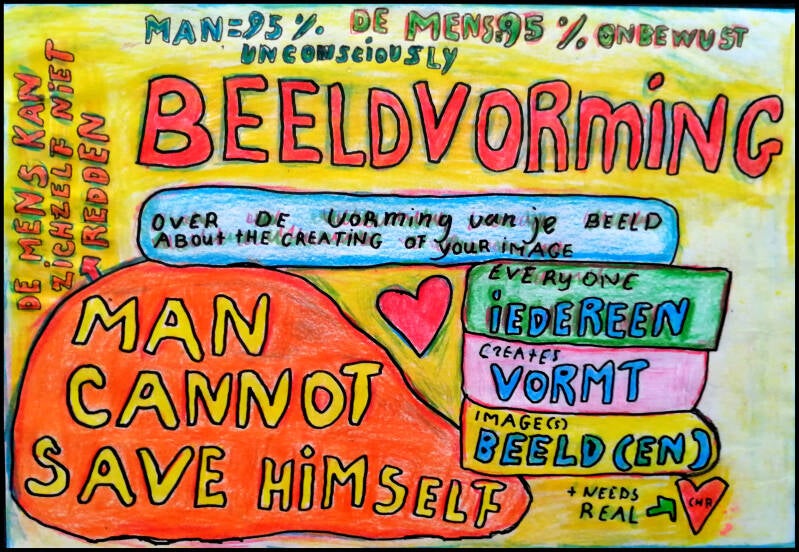 MAN=95% DE MENS:95% ONBEWUST
UNCONSCIOUSLY
DE MENS KAN
ZICHZELF NIET
REDDEN
BEELDVORMING
OVER DE VORMING van je BEELD
ABOUT THE CREATING OF YOUR IMAGE
EVERYONE
iEDEREEN
CREATES
VORMT
IMAGE(S)
BEELD(EN)
MAN
CANNOT
SAVE HiMSELF
+ NEEDS
REAL